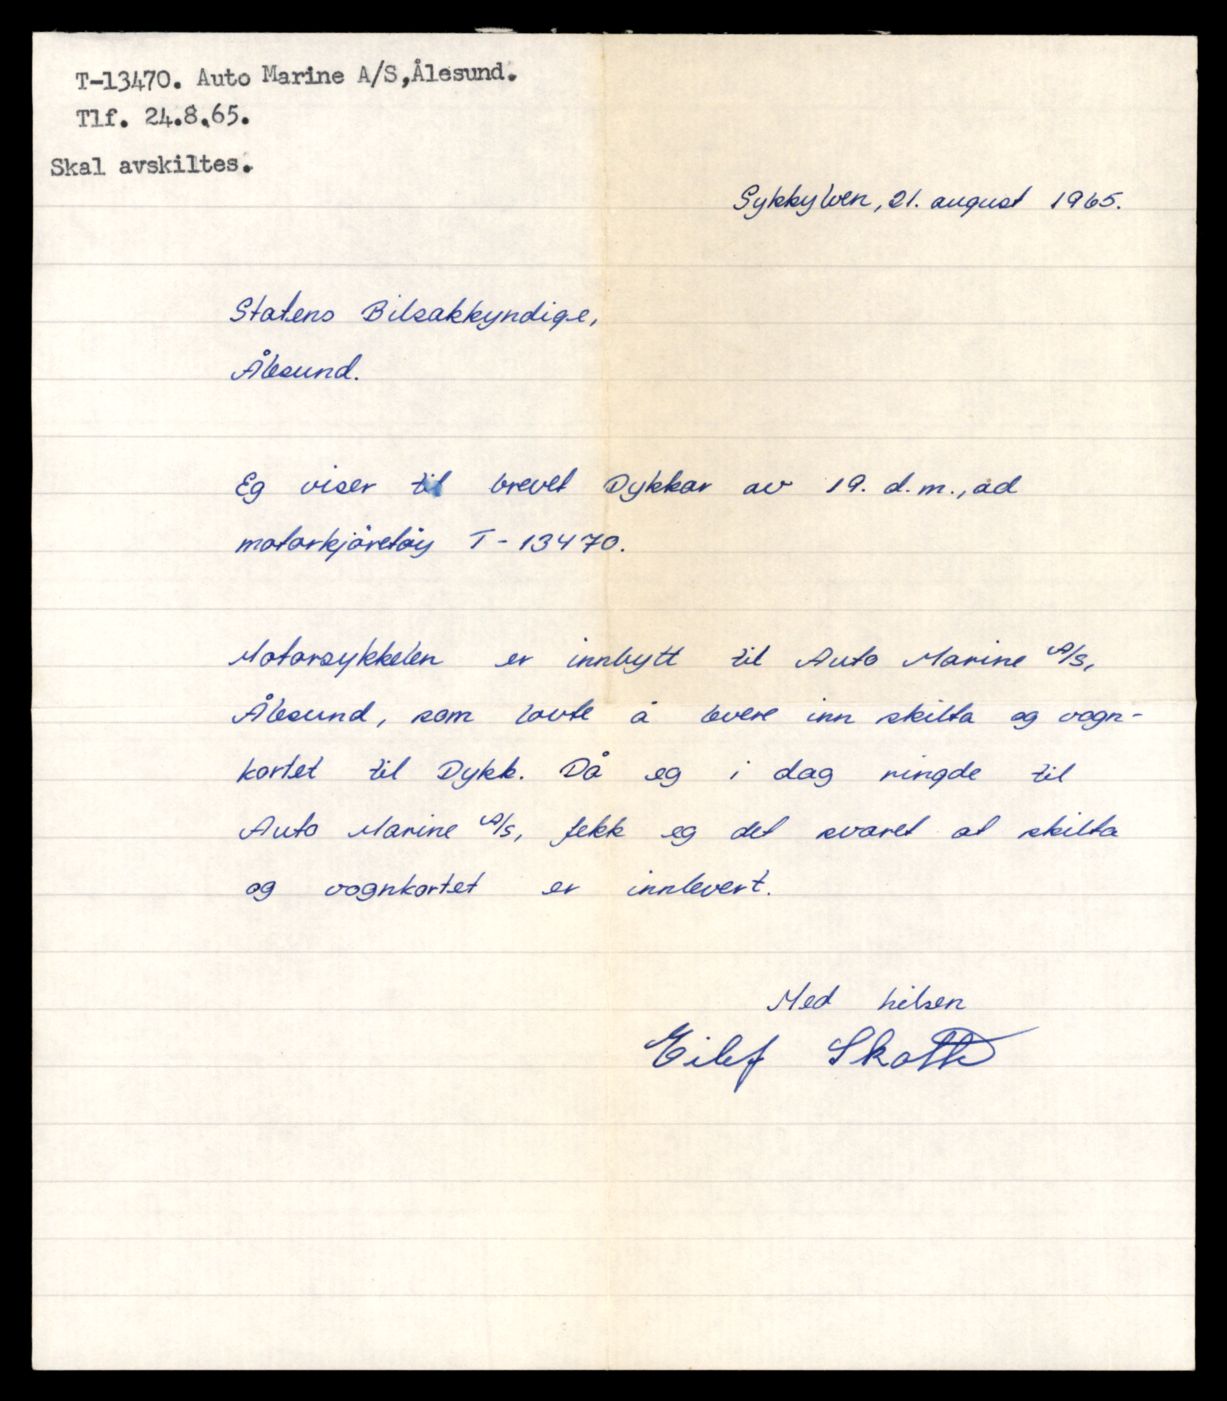 T-13470. Auto Marine A/S,Ålesund.
Tlf. 24.8.65.
Skal avskiltes.
Sykkylven, 21. august 1965.
Statens Bilsakkyndige,
Ålesund.
Eg viser til brevet Dykkar av 19. d.m., ad
motorkjøretøy T-13470.
Motorsykkelen er innbytt til Auto Marine A/S,
Ålesund, som lovte å levere inn skilta og vogn-
kortet til Dykk. Då eg i dag ringde til
Auto Marine A/S, fekk eg det svaret at skilta
og vognkortet er innlevert.
Med helsen
Eilef